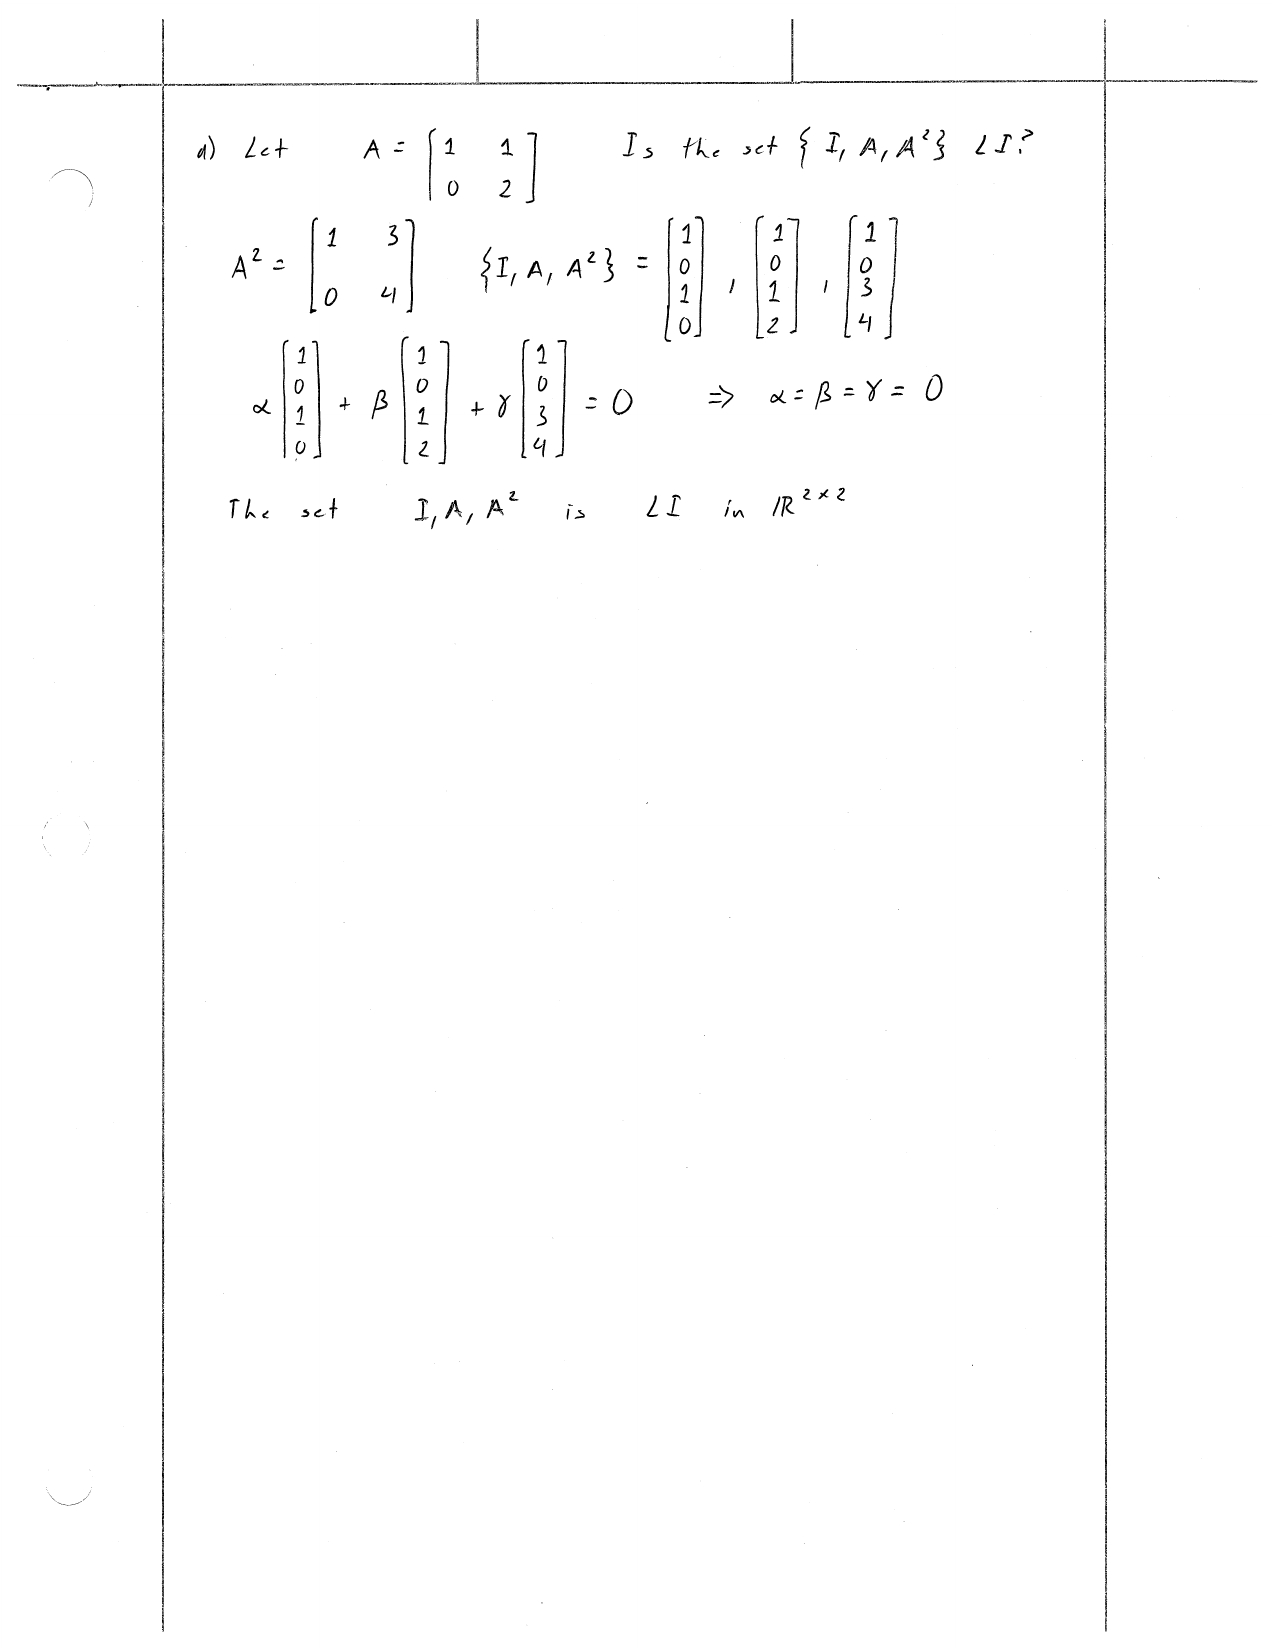 d) Let A = [1 1; 0 2] Is the set { I, A, A²} LI?
A² = [1 3; 0 4] {I, A, A²} = [1; 0; 1; 0], [1; 0; 1; 2], [1; 0; 3; 4]
α[1; 0; 1; 0] + β[1; 0; 1; 2] + γ[1; 0; 3; 4] = 0 ⇒ α = β = γ = 0
The set I, A, A² is LI in ℝ²ˣ²